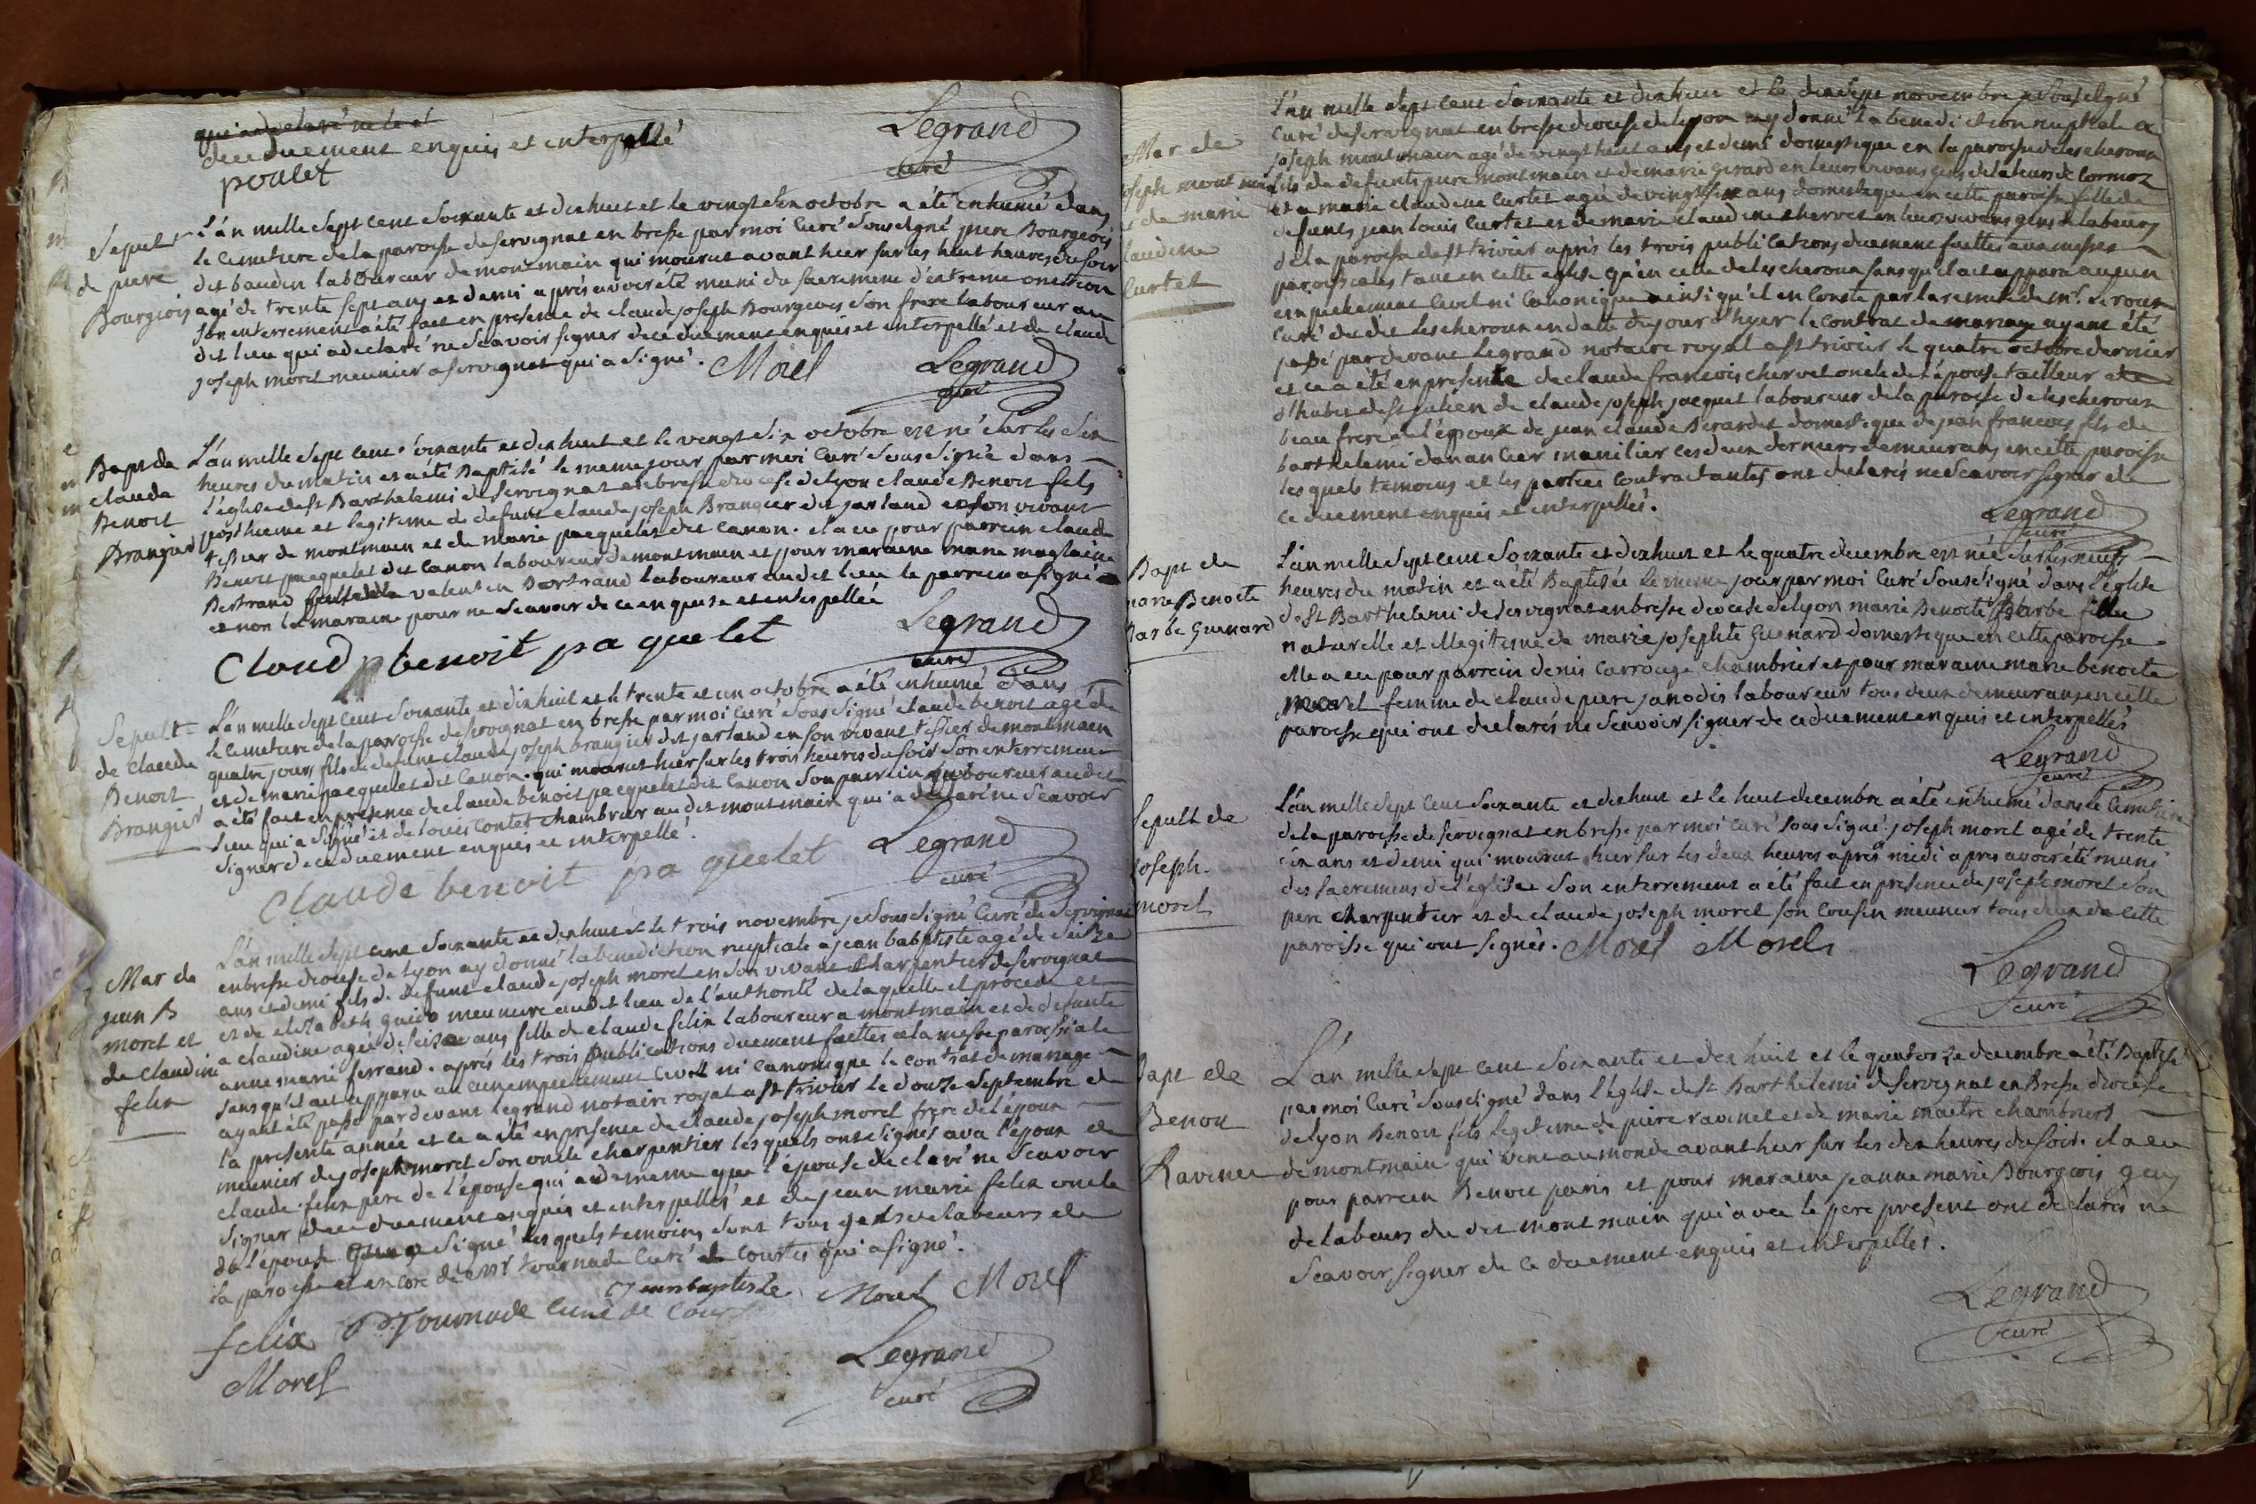 de ce duement enquis et interpellé
poulet
Legrand
curé
Sepult
de piere
Bourgiois
L'an mille sept cent soixante et dixhuit et le vingt six octobre a été inhumé dans
le cimetiere de la paroisse de servignat en bresse par moi curé soussigné piere Bourgeois
dit baudin laboureur de montmain qui mourut avant hier sur les huit heures du soir
agé de trente sept ans et demi après avoir été muni du sacrement d'extreme onction
son enterrement a été fait en presence de claude joseph Bourgeois son frere laboureur au
dit lieu qui a declaré ne scavoir signer de ce duement enquis et interpellé et de claude
joseph morel meunier a servignat qui a signé.
Morel
Legrand
curé
Bapt de
claude
Benoit
Brangier
L'an mille sept cent soixante et dixhuit et le vingt six octobre est né sur les six
heures du matin et a été Baptisé le meme jour par moi curé soussigné dans
l'église de st Barthelemi de servignat en bresse diocese de lyon claude Benoit fils
posthume et legitime de defunt claude joseph Brangier dit jarland en son vivant
tissier de montmain et de marie paequelet dit canon. il a eu pour parrein claude
Benoit paequelet dit canon laboureur de montmain et pour maraine marie
Bertrand valentin Bertrand laboureur audit lieu le parrein a signé
et non la maraine pour ne scavoir de ce enquise et interpellée
Claude benoit pa quelet
Legrand
curé
Sepult
de claude
Benoit
Brangier
L'an mille sept cent soixante et dixhuit et le trente et un octobre a été inhumé dans
le cimetiere de la paroisse de servignat en bresse par moi curé soussigné claude benoit agé de
quatre jours fils de defunt claude joseph brangier dit jarland en son vivant tissier de montmain
et de marie paequelet dit canon. qui mourut hier sur les trois heures du soir son enterrement
a été fait en presence de claude benoit paequelet dit canon son parrein laboureur audit
lieu qui a signé et de louis contet chambrier au dit montmain qui a declaré ne scavoir
signer de ce duement enquis et interpellé.
Claude benoit pa quelet
Legrand
curé
Mar de
jean B
morel et
de claudine
felix
L'an mille sept cent soixante et dixhuit et le trois novembre je soussigné curé de servignat
en bresse diocese de lyon ay donné la benediction nuptiale a jean babptiste agé de seize
ans et demi fils de defunt claude joseph morel en son vivant charpentier de servignat
et de elizabeth meuniere audit lieu de l'authorité de laquelle il procede et
a claudine agée de seize ans fille de claude felix laboureur a montmain et de defunte
anne marie ferrand. après les trois publications duement faittes a la messe paroissiale
sans qu'il ait apparu aucun empechement civil ni canonique le contrat de mariage
ayant été passé pardevant Legrand notaire royal a st trivier le douze septembre de
la presente année et ce a été en presence de claude joseph morel frere de l'époux
meunier de joseph morel son oncle charpentier lesquels ont signés avec l'époux et
claude felix pere de l'épouse qui a de meme que l'épouse declaré ne scavoir
signer de ce duement enquis et interpellés et de jean marie felix oncle
de l'épouse signé lesquels temoins sont tous gens de labeurs de
la paroisse et encore de mr tournade curé de courtes qui a signé.
jean baptiste Morel Morel
felix Tournade curé de
Morel
Legrand
curé
Mar de
joseph montmain
de marie
laudine
Curtet
L'an mille sept cent soixante et dixhuit et le dixsept novembre je soussigné
curé de servignat en bresse diocese de lyon ay donné la benediction nuptiale a
joseph montmain agé de vingt huit ans et demi domestique en la paroisse de lescheroux
fils de defunts piere montmain et de marie girard en leurs vivans gens de labeurs de Cormoz
et a marie claudine Curtet agée de vingt six ans domestique en cette paroisse fille de
defunts jean louis Curtet et de marie claudine chervet en leurs vivans gens de labeurs
de la paroisse de st trivier après les trois publications duement faittes aux messes
paroissiales tant en cette eglise qu'en celle de lescheroux sans qu'il ait apparu aucun
empechement civil ni canonique ainsi qu'il en conste par la remise de mr Leroux
curé du dit lescheroux en datte du jour d'hyer le contrat de mariage ayant été
passé pardevant Legrand notaire royal a st trivier le quatre octobre dernier
et ce a été en presence de claude francois chervet oncle de l'épouse tailleur
d'habits de st julien de claude joseph jacquet laboureur de la paroisse de lescheroux
beau frere de l'époux de jean claude Berardet domestique de jean francois fils de
barthelemi danancier manilier ces deux derniers demeurans en cette paroisse
lesquels temoins et les parties contractantes ont declarés ne scavoir signer de
ce duement enquis et interpellés.
Legrand
curé
Bapt de
marie Benoite
Barbe Guenard
L'an mille sept cent soixante et dixhuit et le quatre decembre est née sur les neufs
heures du matin et a été Baptisée le meme jour par moi curé soussigné dans l'eglise
de st Barthelemi de servignat en bresse diocese de lyon marie Benoite Barbe fille
naturelle et illegitime de marie josephte Guenard domestique en cette paroisse
elle a eu pour parrein denis carrouge chambrier et pour maraine marie benoite
morel femme de claude piere janodis laboureur tous deux demeurans en cette
paroisse qui ont declarés ne scavoir signer de ce duement enquis et interpellés
Legrand
curé
Sepult de
joseph
morel
L'an mille sept cent soixante et dixhuit et le huit decembre a été inhumé dans le cimetiere
de la paroisse de servignat en bresse par moi curé soussigné joseph morel agé de trente
six ans et demi qui mourut hier sur les deux heures après midi apres avoir été muni
des sacremens de l'eglise son enterrement a été fait en presence de joseph morel son
pere charpentier et de claude joseph morel son cousin meunier tous deux de cette
paroisse qui ont signés. Morel Morel
Legrand
curé
Bapt de
Benoit
Ravinet
L'an mille sept cent soixante et dixhuit et le quatorze decembre a été Baptisé
par moi curé soussigné dans l'eglise de st Barthelemi de servignat en Bresse diocese
de lyon Benoit fils legitime de piere ravinet et de marie maitre chambriers
de montmain qui vint au monde avant hier sur les dix heures du soir. il a eu
pour parrein Benoit paris et pour maraine jeanne marie Bourgeois gens
de labeurs du dit montmain qui avec le pere present ont declarés ne
scavoir signer de ce duement enquis et interpellés.
Legrand
curé